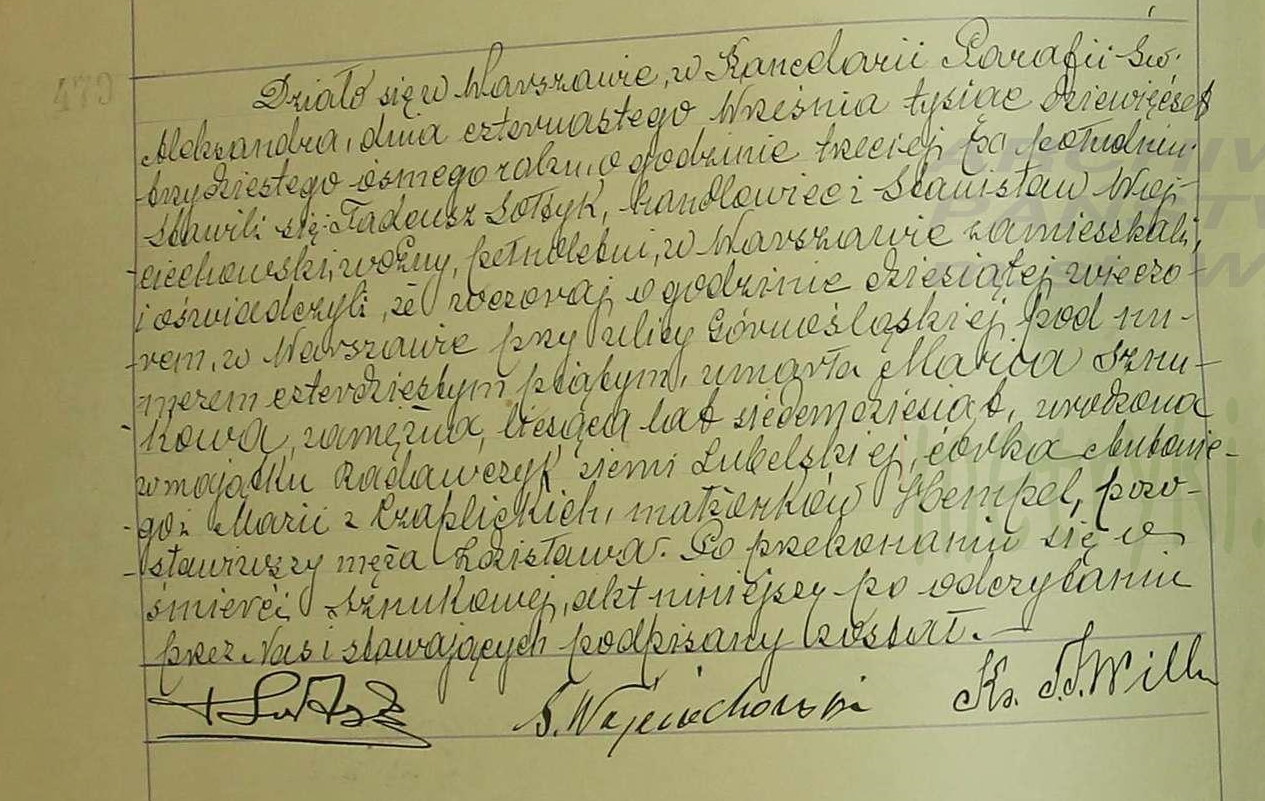 479
Działo się w Warszawie, w Kancelarii Parafii Św.
Aleksandra, dnia czternastego Września tysiąc dziewięćset
trzydziestego ósmego roku, o godzinie trzeciej po południu.
Stawili się: Tadeusz Sołtyk, handlowiec i Stanisław Woj-
-ciechowski, woźny, pełnoletni, w Warszawie zamieszkali,
i oświadczyli, że wczoraj o godzinie dziesiątej wieczo-
-rem, w Warszawie przy ulicy Górnośląskiej pod nu-
merem czterdziestym piątym, umarła Maria Sznu-
-kowa, zamężna, licząca lat siedemdziesiąt, urodzona
w majątku Radawczyk ziemi Lubelskiej, córka Antonie-
-go i Marii z Czaplickich, małżonków Hempel, pozo-
-stawiwszy męża Zdzisława. Po przekonaniu się o
śmierci Sznukowej, akt niniejszy po odczytaniu
przez Nas i stawających podpisany został.—
T Sołtyk S. Wojciechowski Ks.